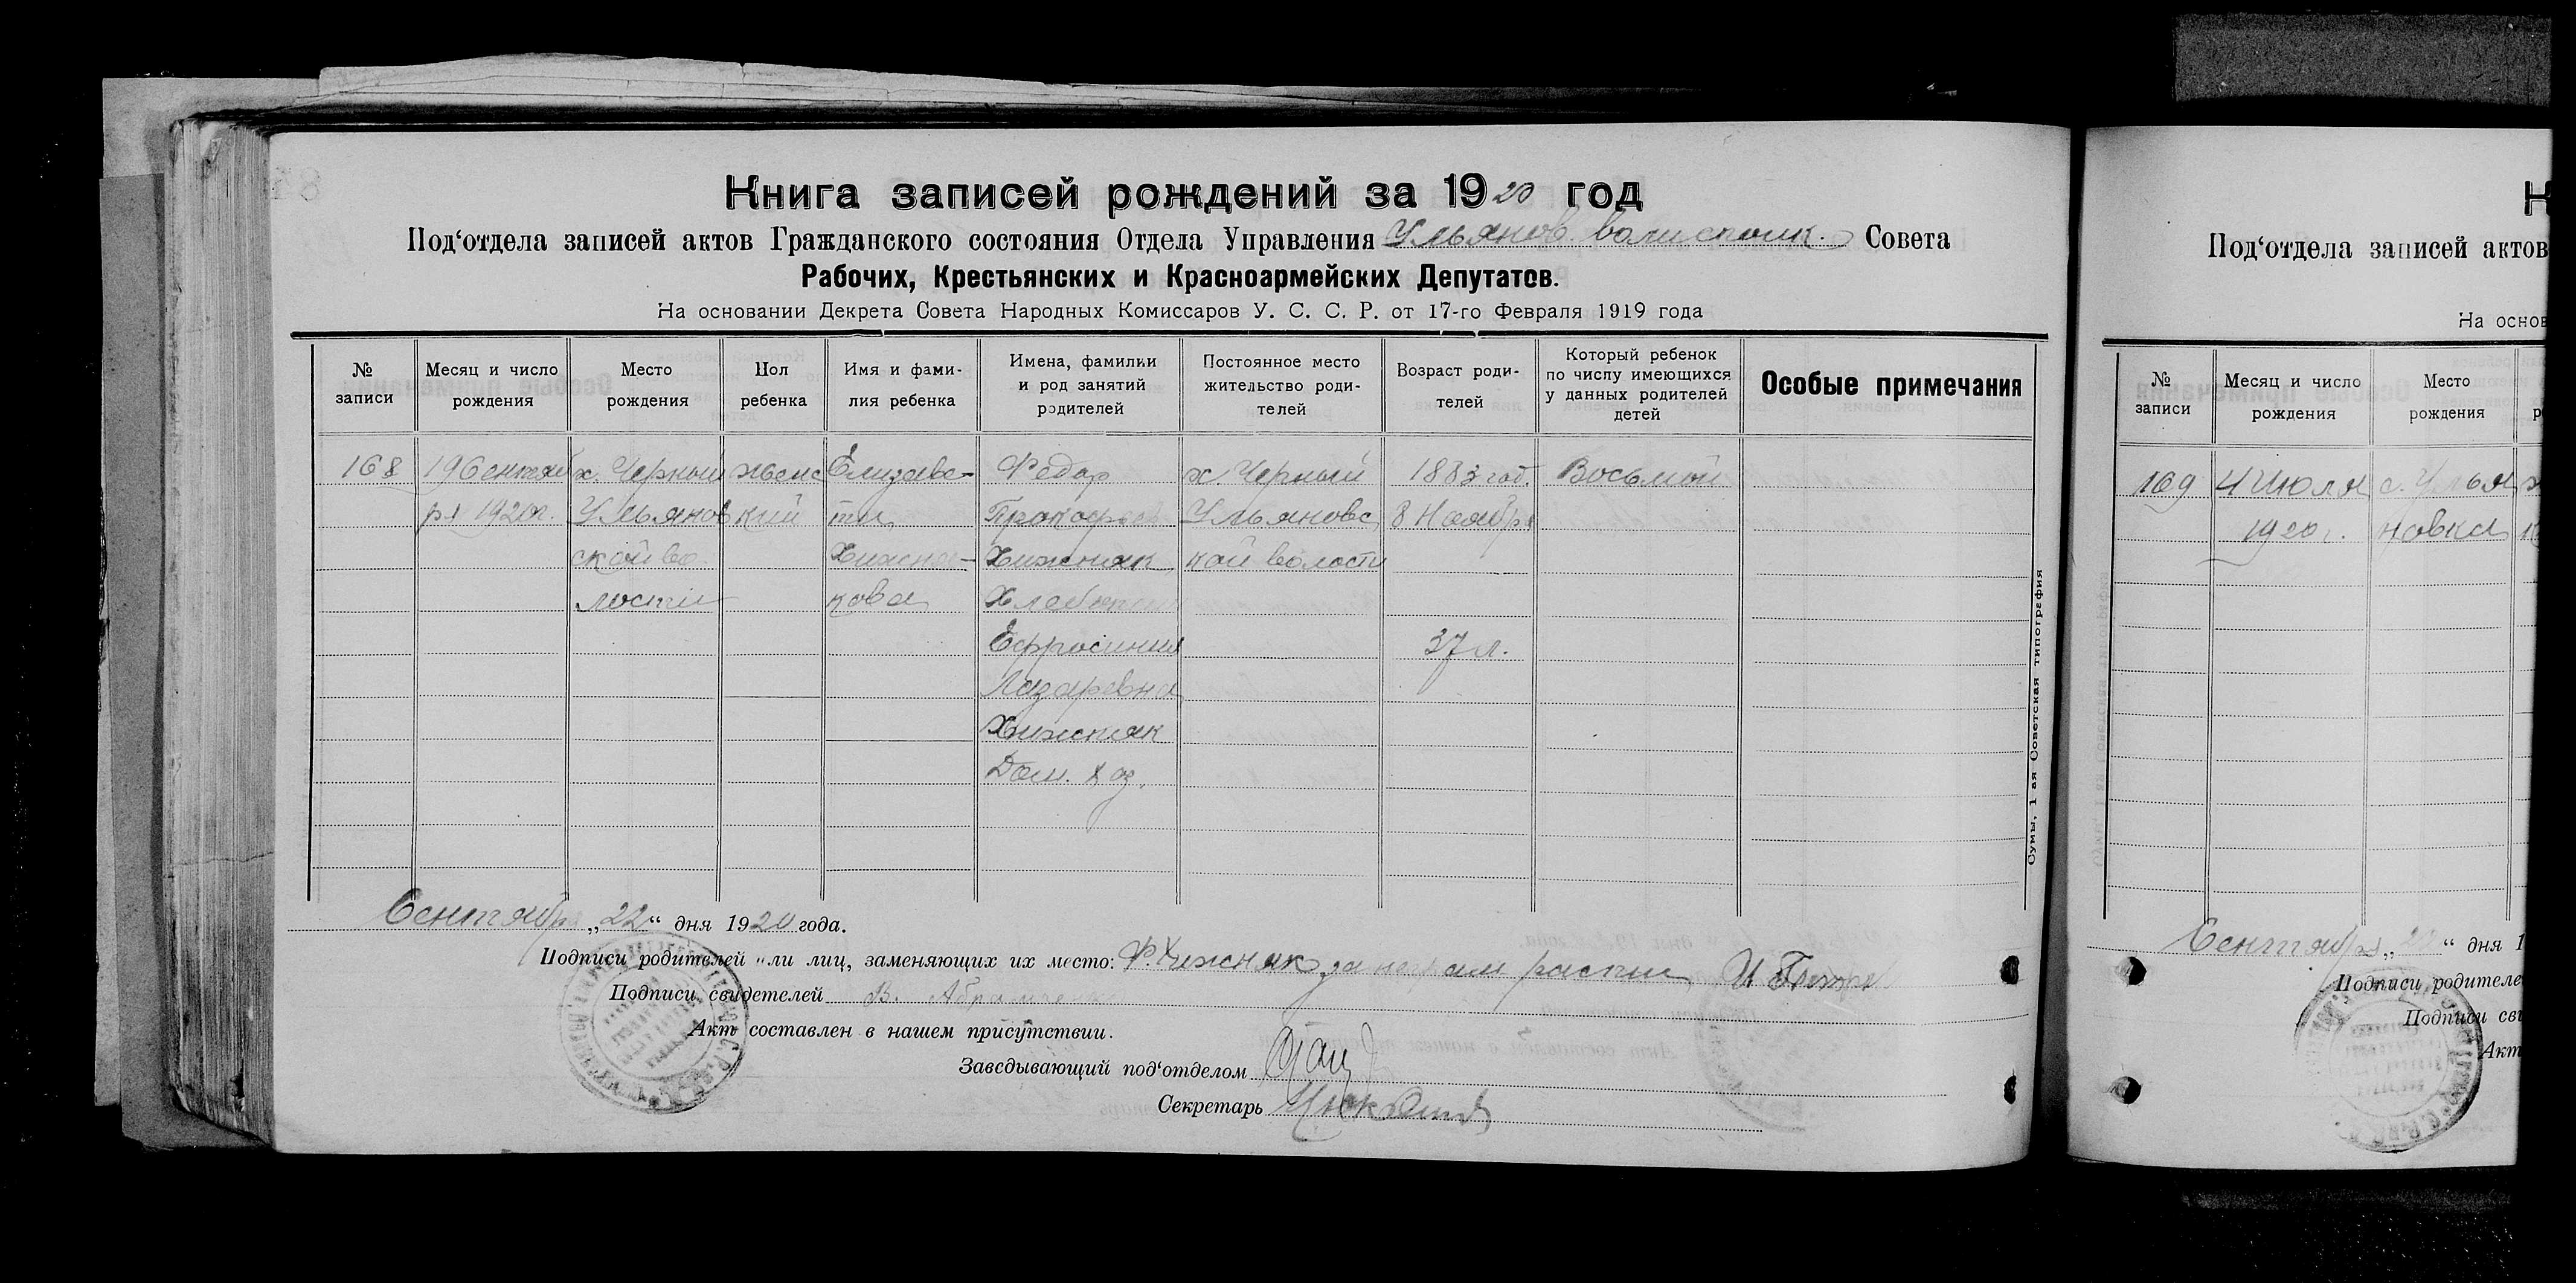 Книга записей рождений за 1920 год
Под‘отдела записей актов Гражданского состояния Отдела Управления Ульянов. волисполк. Совета
Рабочих, Крестьянских и Красноармейских Депутатов.
На основании Декрета Совета Народных Комиссаров У. С. С. Р. от 17-го Февраля 1919 года
№ записи
Месяц и число рождения
Место рождения
Пол ребенка
Имя и фами-
лия ребенка
Имена, фамильи
и род занятий
родителей
Постоянное место
жительство роди-
телей
Возраст роди-
телей
Который ребенок
по числу имеющихся
у данных родителей
детей
Особые примечания
168 19 Сентяб х. Черный женс Елизаве- Федор х. Черный 1883 год. Восьмой
ря 1920г. Ульянов кий ты Прокофьев Ульяновс 8 Ноября
ской во Хижня- Хижняк кой волости
лости кова
Ефросиния 37 л.
Лазаревна
Хижняк
Дом. хоз.
Сентября „22“ дня 1920 года.
Подписи родителей или лиц, заменяющих их место: Ф. Хижняк за
Подписи свидетелей В.
Акт составлен в нашем присутствии.
Заведывающий под‘отделом
Секретарь
Сумы, 1 ая Советская типография
Под‘отдела записей актов
На основ
№ записи
Месяц и число рождения
Место рождения
169 4 Июля с. Улья
1920 г. новка
Сентября „ “ дня 1
Подписи родителе
Подписи сви
Акт